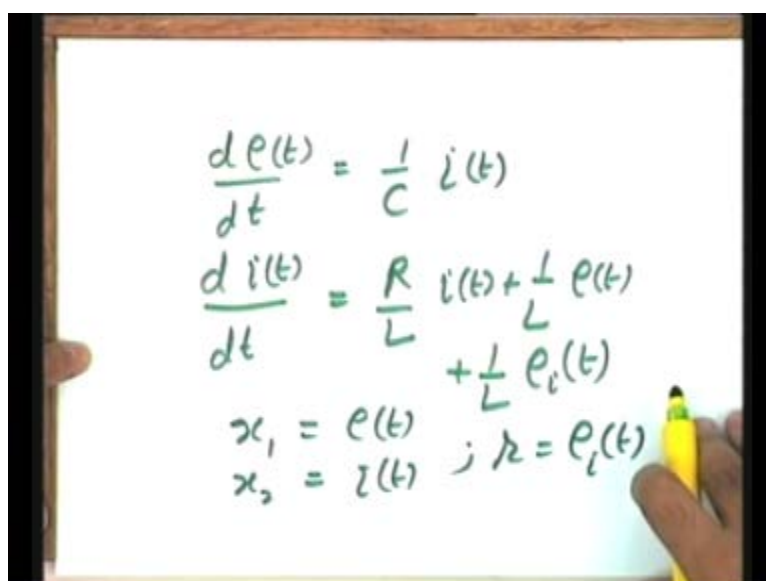 d e(t)/dt = 1/C i(t)
d i(t)/dt = R/L i(t) + 1/L e(t)
+ 1/L e_i(t)
x_1 = e(t)
x_2 = i(t) ; r = e_i(t)